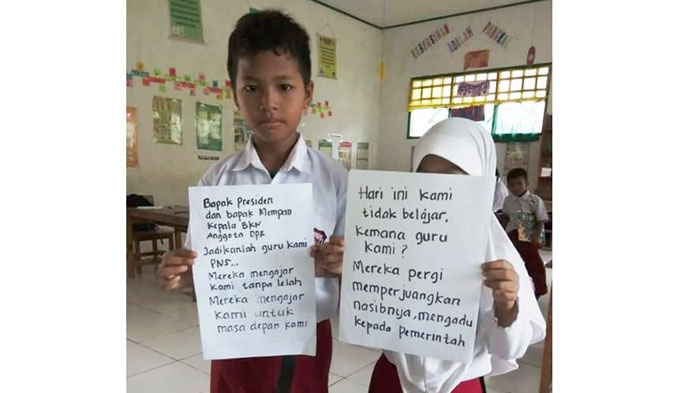 KEBERSIHAN
ADALAH
PANGKAL
Bapak Presiden
dan bapak Mempan
Kepala BKN
Anggota DPR
Jadikanlah guru kami
PNS...
Mereka mengajar
kami tanpa lelah
Mereka mengajar
kami untuk
masa depan kami
Hari ini kami
tidak belajar,
Kemana guru
kami?
Mereka pergi
memperjuangkan
nasibnya, mengadu
kepada pemerintah